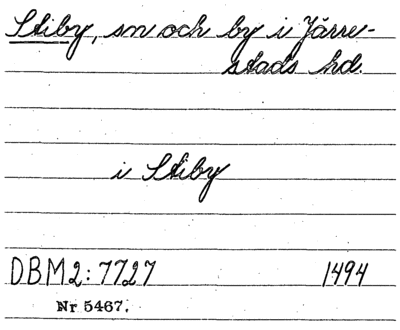 Stiby, sn och by i Järre-
stads hd.
i Stiby
DBM 2: 7727 1494
Nr 5467.